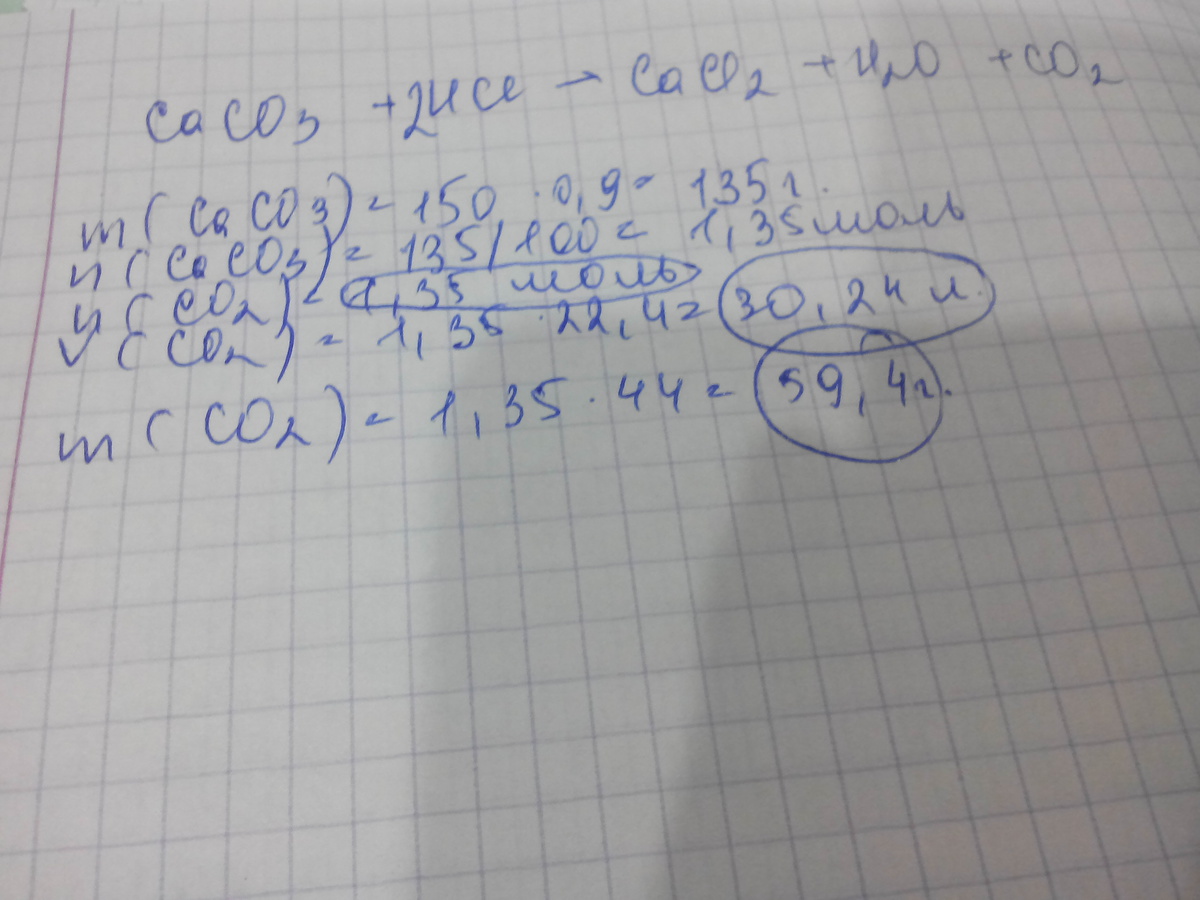 CaCO3 + 2HCl → CaCl2 + H2O + CO2
m(CaCO3) = 150 · 0,9 = 135 г.
n(CaCO3) = 135/100 = 1,35 моль
n(CO2) = 1,35 моль
V(CO2) = 1,35 · 22,4 = 30,24 л.
m(CO2) = 1,35 · 44 = 59,4 г.